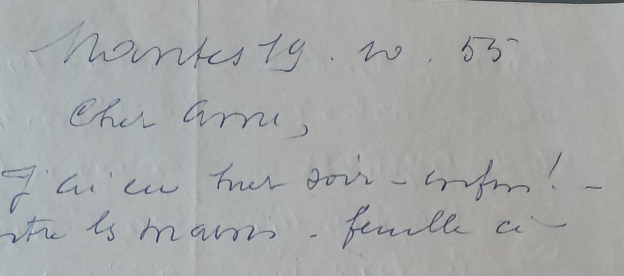 Nantes 19. 10. 55
Cher ami,
J'ai eu hier soir - enfin! -
ntre les mains - feuille ci-